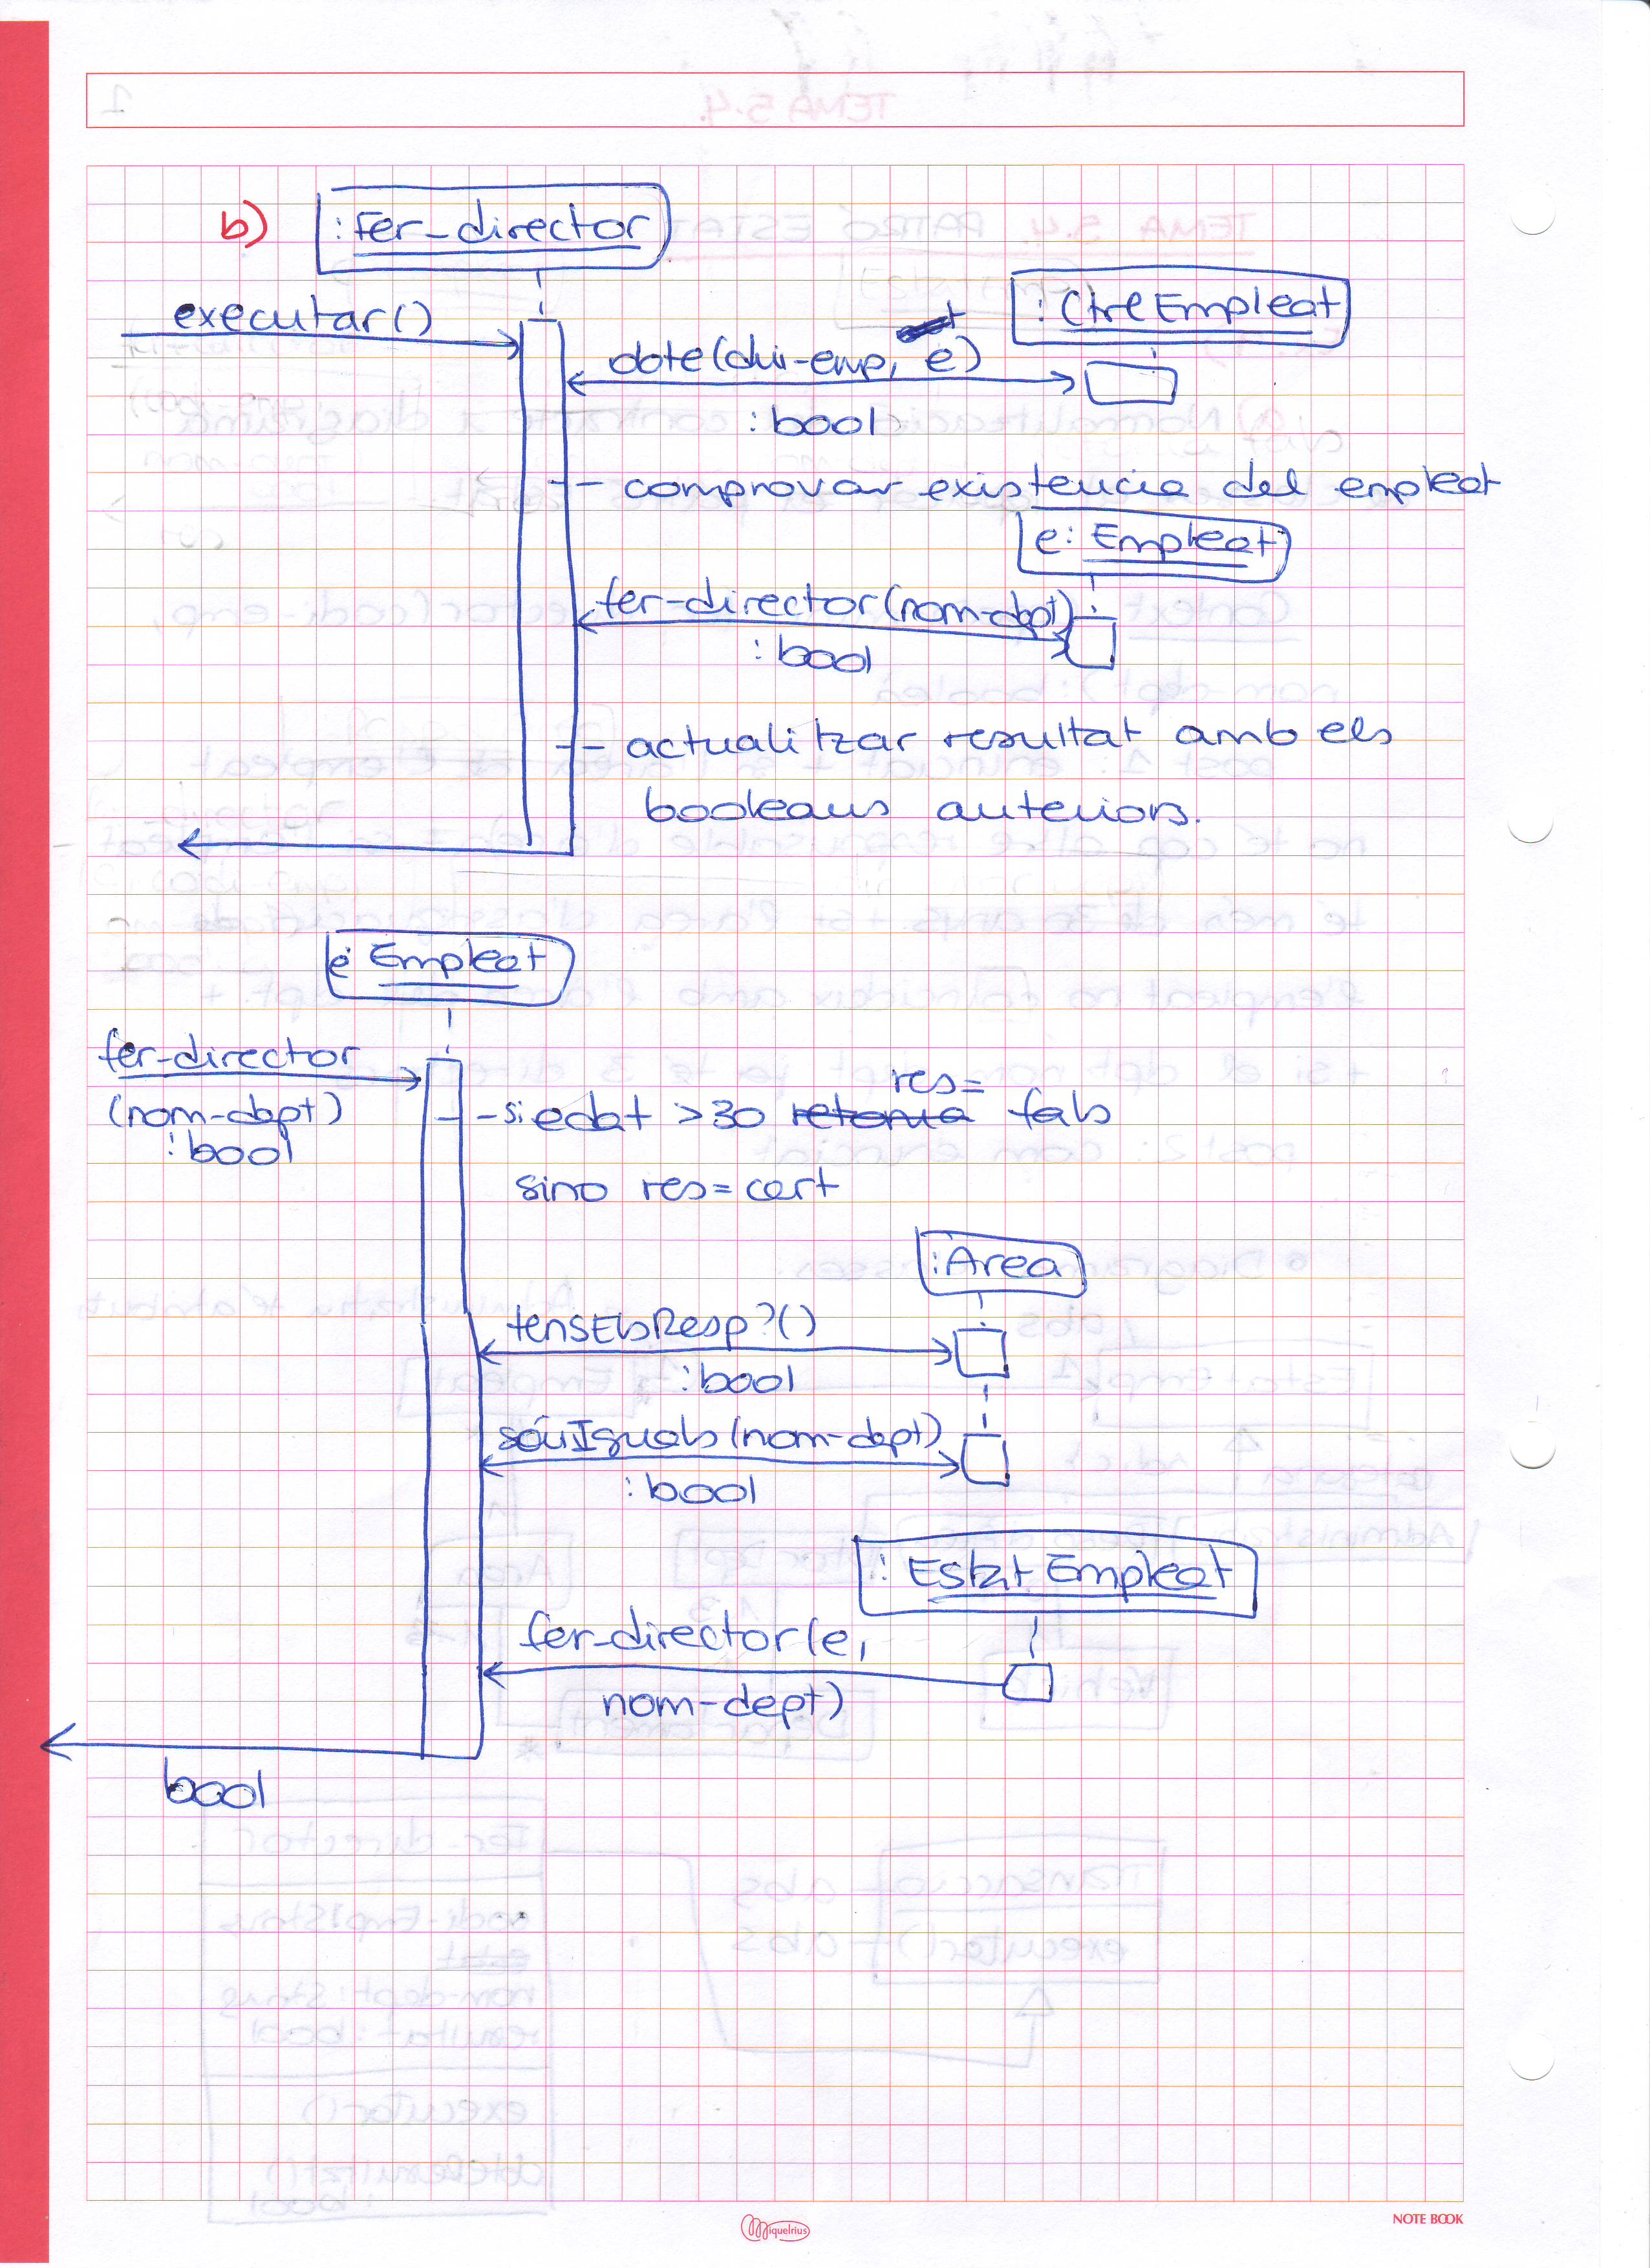 b)
:Fer-director
executar()
:CtrlEmpleat
: bool
-- comprovar existencia del empleat
e: Empleat
fer-director(nom-dpt)
: bool
-- actualitzar resultat amb els
booleans anteriors.
e Empleat
fer-director
(nom-dept)
: bool
res=
-- si edat >30 retorna fals
sino res=cert
:Area
tensEtsResp?()
: bool
sóuIguals(nom-dept)
: bool
: Estat Empleat
fer-director(e,
nom-dept)
bool
Miquelrius
NOTE BOOK